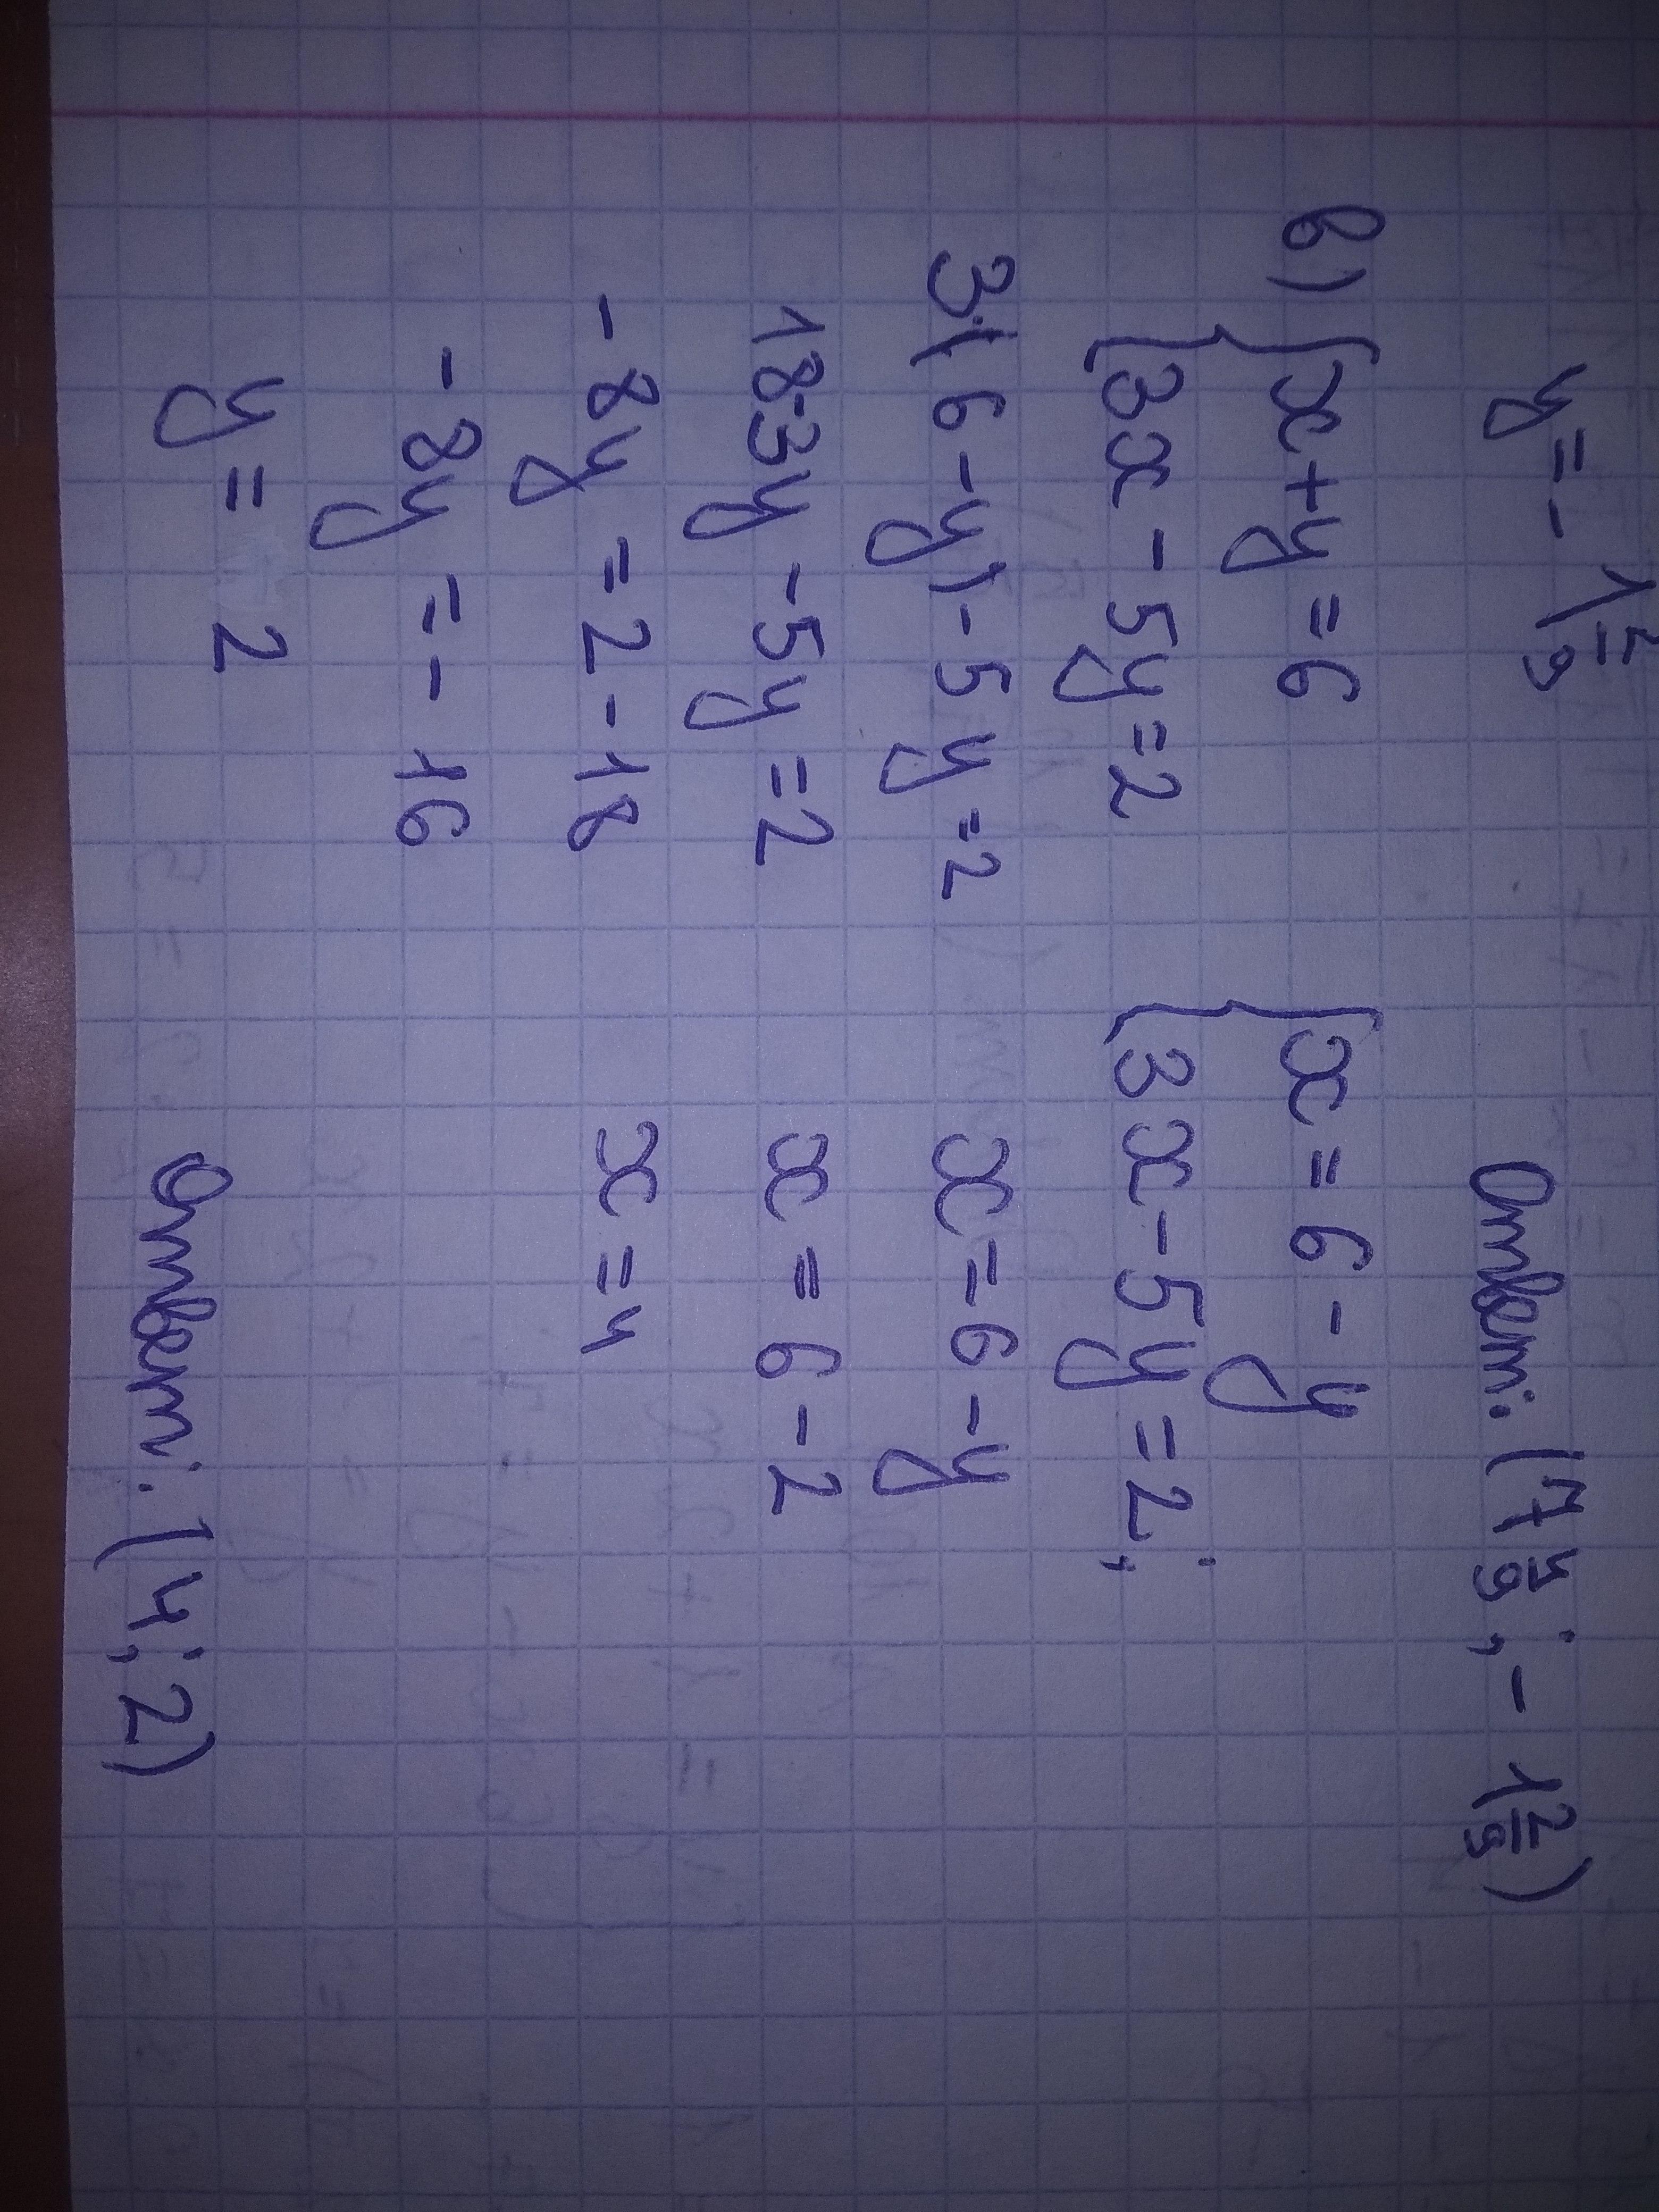 y = - 1 2/9
Ответ: (7 4/9 ; - 1 2/9)
в) { x + y = 6 { x = 6 - y
{ 3x - 5y = 2 { 3x - 5y = 2;
3·(6 - y) - 5y = 2 x = 6 - y
18-3y - 5y = 2 x = 6 - 2
- 8y = 2 - 18 x = 4
- 8y = - 16
y = 2
Ответ: (4; 2)